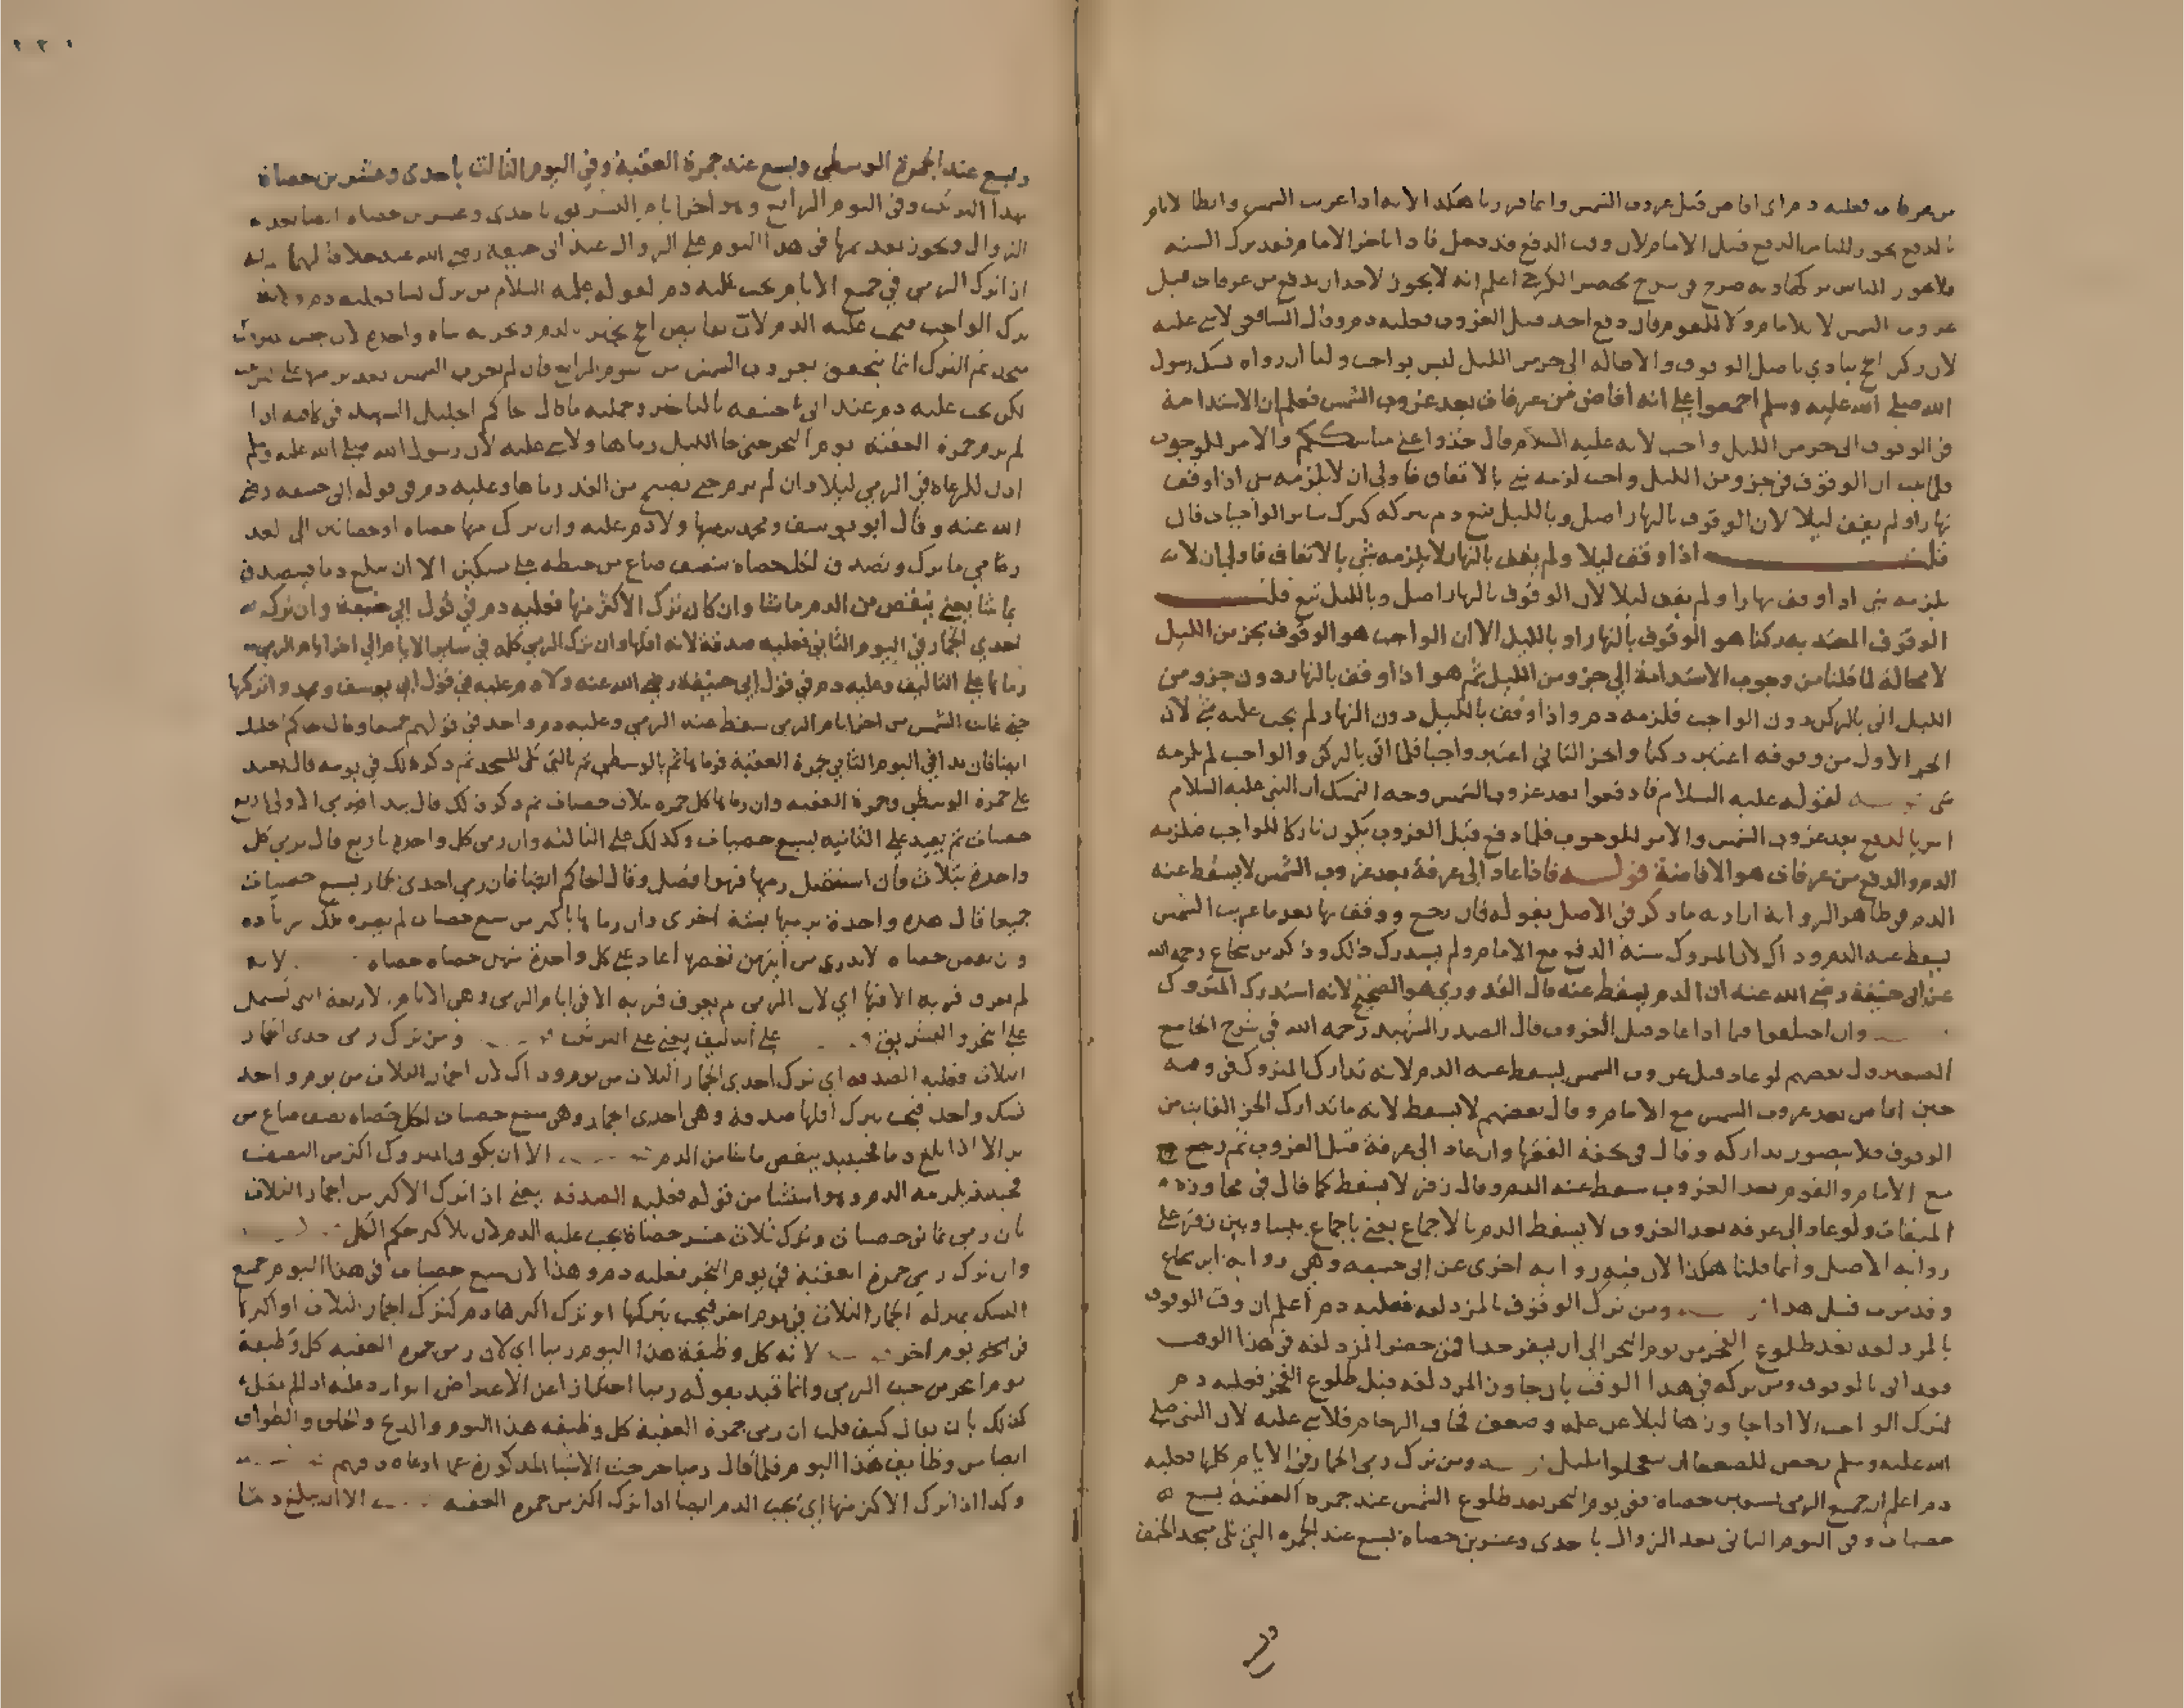 من عرفات فعليه دم اي افاض قبل غروب الشمس وانما قدرنا هكذا لانه اذا غربت الشمس وابطا الامام
بالدفع يجوز للناس الدفع قبل الامام لان وقت الدفع قد دخل فاذا تاخر الامام فقد ترك السنة
فلا يجوز للناس تركها وبه صرح في شرح مختصر الكرخي اعلم انه لا يجوز لاحد ان يدفع من عرفات قبل
غروب الشمس لا للامام ولا للقوم فان دفع احد قبل الغروب فعليه دم وقال الشافعي لا شي عليه
لان ركن الحج يتادي باصل الوقوف والاطالة الى جزء من الليل ليس بواجب ولنا ان رواة نسك رسول
الله صلى الله عليه وسلم اجمعوا على انه افاض من عرفات بعد غروب الشمس فعلم ان الاستدامة
في الوقوف الى جزء من الليل واجب لانه عليه السلام قال خذوا عني مناسككم والامر للوجوب
ان الوقوف في جزء من الليل واجب لزمه شي بالاتفاق فاولى ان لا يلزمه شي اذا وقف
نهارا ولم يقف ليلا لان الوقوف بالنهار اصل وبالليل تبع دم بتركه كترك سائر الواجبات فان
قلت اذا وقف ليلا ولم يقف بالنهار لا يلزمه شي بالاتفاق فاولى ان لا
يلزمه شي اذا وقف نهارا ولم يقف ليلا لان الوقوف بالنهار اصل وبالليل تبع قلت
الوقوف المعتد به ركنا هو الوقوف بالنهار او بالليل الا ان الواجب هو الوقوف بجزء من الليل
لا محالة لما قلنا من وجوب الاستدامة الى جزء من الليل ثم هو اذا وقف بالنهار دون جزء من
الليل اتى بالركن دون الواجب فلزمه دم واذا وقف بالليل دون النهار لم يجب عليه شي لان
الجزء الاول من وقوفه اعتبر ركنا والجزء الثاني اعتبر واجبا فلما اتى بالركن والواجب لم يلزمه
شي لقوله عليه السلام فادفعوا بعد غروب الشمس وجه التمسك ان النبي عليه السلام
امر بالدفع بعد غروب الشمس والامر للوجوب فلما دفع قبل الغروب يكون تاركا للواجب فلزمه
الدم والدفع من عرفات هو الافاضة قوله فاذا عاد الى عرفة بعد غروب الشمس لا يسقط عنه
الدم في ظاهر الرواية اراد به ما ذكر في الاصل بقوله فان رجع ووقف بها بعد ما غربت الشمس
يسقط عنه الدم وذاك لان المتروك سنة الدفع مع الامام ولم يستدرك ذلك وذكر ابن شجاع رحمه الله
عن ابي حنيفة رضي الله عنه ان الدم يسقط عنه قال القدوري هو الصحيح لانه استدرك المتروك
وان اختلفوا فيما اذا عاد قبل الغروب قال الصدر الشهيد رحمه الله في شرح الجامع
الصغير قال بعضهم لو عاد قبل غروب الشمس يسقط عنه الدم لانه تدارك المتروك في وقته
حين افاض بعد غروب الشمس مع الامام وقال بعضهم لا يسقط لانه ما تدارك الجزء الفائت من
الوقوف فلا يتصور تداركه وقال في تحفة الفقها وان عاد الى عرفة قبل الغروب ثم رجع
مع الامام والقوم بعد الغروب سقط عنه الدم وقال زفر لا يسقط كما قال في مجاوزة
الميقات ولو عاد الى عرفة بعد الغروب لا يسقط الدم بالاجماع يعني باجماع بيننا وبين زفر على
رواية الاصل وانما قلنا هكذا لان فيه رواية اخرى عن ابي حنيفة وهي رواية ابن شجاع
وقد مرت قبل هذا ومن ترك الوقوف بالمزدلفة فعليه دم اعلم ان وقت الوقوف
بالمزدلفة بعد طلوع الفجر من يوم النحر الى ان يسفر جدا فمن حضر المزدلفة في هذا الوقت
فقد اتى بالوقوف ومن تركه في هذا الوقت بان جاوز المزدلفة قبل طلوع الفجر فعليه دم
لترك الواجب الا اذا جاوزها ليلا عن علة وضعف فخاف الزحام فلا شي عليه لان النبي صلى
الله عليه وسلم رخص للضعفاء ان يتعجلوا بليل ومن ترك رمي الجمار في الايام كلها فعليه
دم اعلم ان جميع الرمي سبعون حصاة ففي يوم النحر بعد طلوع الشمس عند جمرة العقبة سبع
حصيات وفي اليوم الثاني بعد الزوال باحدى وعشرين حصاة سبع عند الجمرة التي تلي مسجد الخيف
وسبع عند الجمرة الوسطى وسبع عند جمرة العقبة وفي اليوم الثالث باحدى وعشرين حصاة
بهذا الترتيب وفي اليوم الرابع وهو اخر ايام التشريق باحدى وعشرين حصاة ايضا بعد
الزوال ويجوز تقديمها في هذا اليوم على الزوال عند ابي حنيفة رضي الله عنه خلافا لهما
اذا ترك الرمي في جميع الايام يجب عليه دم لقوله عليه السلام من ترك نسكا فعليه دم ولانه
ترك الواجب فيجب عليه الدم لان نقايص الحج تجبر بالدم ويجزيه شاة واحدة لان جنس المتروك
متحد ثم الترك انما يتحقق بغروب الشمس من اليوم الرابع فان لم تغرب الشمس بعد يرميها على الترتيب
لكن يجب عليه دم عند ابي حنيفة بالتاخير وجملته ما قال حاكم الجليل الشهيد في كافيه اذا
لم يرم جمرة العقبة يوم النحر حتى جا الليل رماها ولا شي عليه لان رسول الله صلى الله عليه وسلم
اذن للرعاة في الرمي ليلا وان لم يرم حتى يصبح من الغد رماها وعليه دم في قول ابي حنيفة رضي
الله عنه وقال ابو يوسف ومحمد يرميها ولا دم عليه وان ترك منها حصاة او حصاتين الى الغد
رمى ما ترك وتصدق لكل حصاة بنصف صاع من حنطة على مسكين الا ان يبلغ دما فيتصدق
بما شا يعني ينقص من الدم ما شا وان كان ترك الاكثر منها فعليه دم في قول ابي حنيفة وان ترك
احدى الجمار في اليوم الثاني فعليه صدقة لانه اقلها وان ترك الرمي كله في سائر الايام الى اخر ايام الرمي
رماها على التاليف وعليه دم في قول ابي حنيفة رضي الله عنه ولا دم عليه في قول ابي يوسف ومحمد وان تركها
حتى غابت الشمس من اخر ايام الرمي سقط عنه الرمي وعليه دم واحد في قولهم جميعا وقال حاكم الجليل
ايضا فان بدا في اليوم الثاني بجمرة العقبة فرماها ثم بالوسطى ثم بالتي تلي المسجد ثم ذكر ذلك في يومه قال يعيد
على جمرة الوسطى وجمرة العقبة وان رماها كل جمرة بثلاث حصيات ثم ذكر ذلك قال يبدا فيرمي الاولى باربع
حصيات ثم يعيد على الثانية بسبع حصيات وكذلك على الثالثة وان رمى كل واحدة باربع قال يرمي كل
واحدة بثلاث وان استقبل رميها فهو افضل وقال الحاكم ايضا فان رمى احدى الجمار بسبع حصيات
جميعا قال هذه واحدة يرميها بستة اخرى وان رماها باكثر من سبع حصيات لم يضره تلك الزيادة
وان نقص حصاة لا يدري من ايتهن نقصها اعاد على كل واحدة منهن حصاة حصاة لانه
لم يعرف قربة الا فيها اي لان الرمي لم يعرف قربة الا في ايام الرمي وهي الايام الاربعة التي تشتمل
على النحر والتشريق على التاليف يعني على الترتيب ومن ترك رمي احدى الجمار
الثلاث فعليه الصدقة اي ترك احدى الجمار الثلاث من يوم وذاك لان الجمار الثلاث من يوم واحد
نسك واحد فيجب بترك اقلها صدقة وهي احدى الجمار وهي سبع حصيات لكل حصاة نصف صاع من
بر الا اذا بلغ دما فحينئذ ينقص ما شا من الدم الا ان يكون المتروك اكثر من النصف
فحينئذ يلزمه الدم وهو استثنا من قوله فعليه الصدقة يعني اذا ترك الاكثر من الجمار الثلاث
بان رمى ثماني حصيات وترك ثلاث عشر حصاة يجب عليه الدم لان للاكثر حكم الكل
وان ترك رمي جمرة العقبة في يوم النحر فعليه دم وهذا لان سبع حصيات في هذا اليوم جميع
النسك بمنزلة الجمار الثلاث في يوم اخر فيجب بتركها او ترك اكثرها دم كترك الجمار الثلاث او اكثرها
في يوم اخر لانه كل وظيفة هذا اليوم رميا اي لان رمي جمرة العقبة كل وظيفة
يوم النحر من حيث الرمي وانما قيد بقوله رميا احترازا عن الاعتراض الوارد عليه اذا لم يقل
كذلك بان يقال كيف قلت ان رمي جمرة العقبة كل وظيفة هذا اليوم والذبح والحلق والطواف
ايضا من وظايف هذا اليوم فلما قال رميا خرجت الاشيا المذكورة
وكذا اذا ترك الاكثر منها اي يجب الدم ايضا اذا ترك اكثر من جمرة العقبة الا انه يبلغ دما